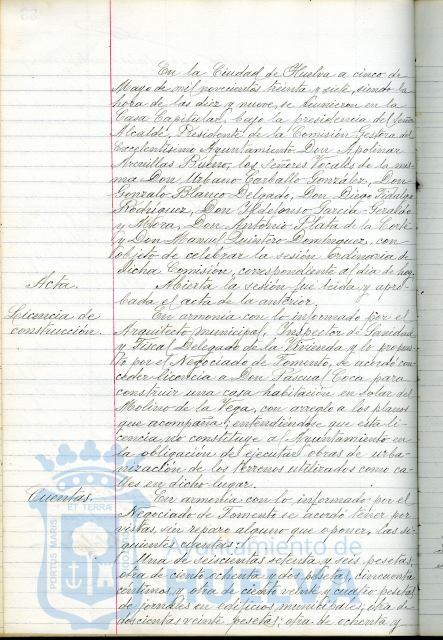 En la Ciudad de Huelva a cinco de
Mayo de mil novecientos treinta y siete, siendo la
hora de las diez y nueve, se reunieron en la
Casa Capitular, bajo la presidencia del Señor
Alcalde, Presidente de la Comisión Gestora del
Excelentísimo Ayuntamiento Don Apolinar
Arenillas Rueno, los señores Vocales de la mis-
ma Don Urbano Carballo González, Don
Gonzalo Blanco Delgado, Don Diego Fidalgo
Rodríguez, Don Ildefonso García Giraldo
y Mora, Don Antonio Plata de la Corte
y Don Manuel Quintero Domínguez, con
objeto de celebrar la sesión ordinaria de
dicha Comisión, correspondiente al día de hoy.
Acta. Abierta la sesión fue leída y apro-
bada el acta de la anterior.
Licencia de construcción. En armonía con lo informado por el
Arquitecto municipal, Inspector de Sanidad
y Fiscal Delegado de la Vivienda y lo propues-
to por el Negociado de Fomento, se acordó con-
ceder licencia a Don Pascual Coca para
construir una casa habitación en solar del
Molino de la Vega, con arreglo a los planos
que acompaña, entendiéndose que esta li-
cencia no constituye al Ayuntamiento en
la obligación de ejecutar obras de urba-
nización de los terrenos utilizados como ca-
lles en dicho lugar.
Cuentas. En armonía con lo informado por el
Negociado de Fomento se acordó tener por
vistas, sin reparo alguno que oponer, las si-
guientes cuentas:
Una de seiscientas setenta y seis pesetas,
otra de ciento ochenta y dos pesetas, cincuenta
céntimos y otra de ciento veinte y cuatro pesetas
de jornales en edificios municipales; otra de
doscientas veinte pesetas; otra de ochenta y
PORTUS MARIS ET TERRAE
Ayuntamiento de
HUELVA